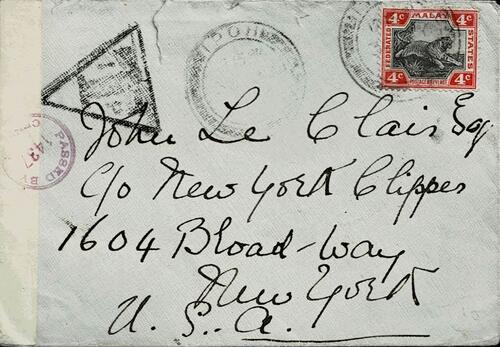 4c MALAY 4c
FEDERATED STATES
4c 4c
IPOH
PASSED BY
1437
John Le Clair Esq
C/o New York Clipper
1604 Bload-way
New York
U. S. A.